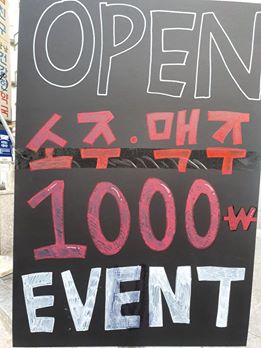 OPEN
소주·맥주
1000₩
EVENT